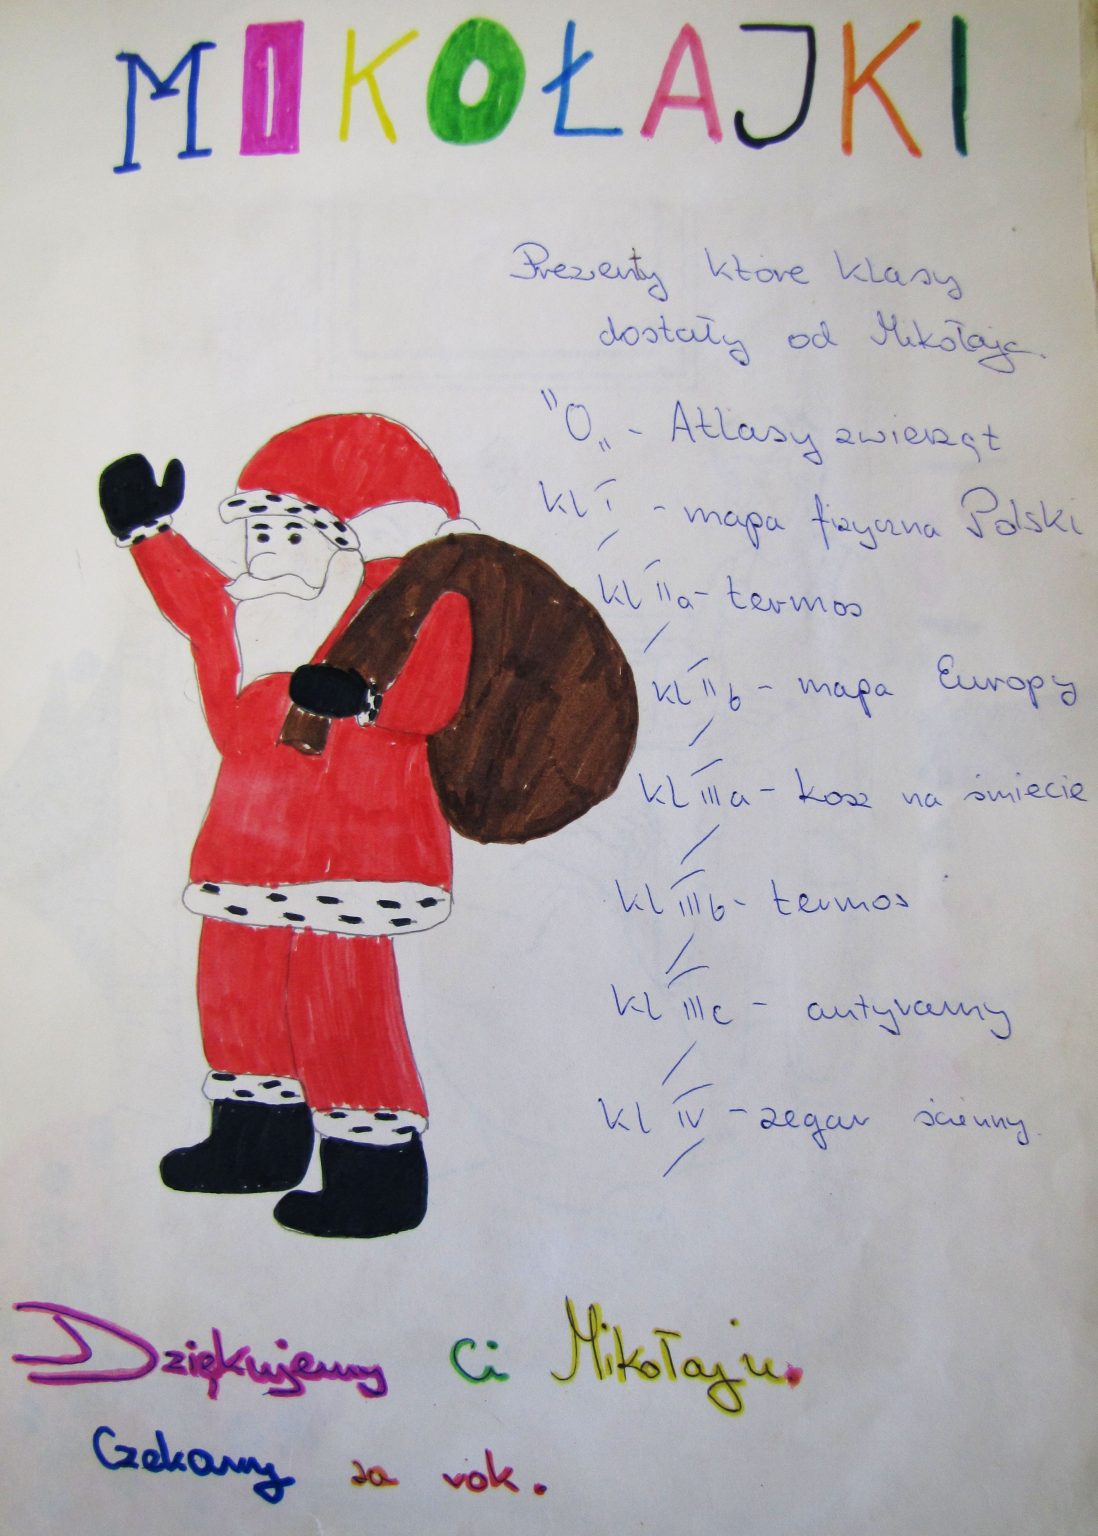 MIKOŁAJKI
Prezenty które klasy
dostały od Mikołaja.
"0„ - Atlasy zwierząt
kl I - mapa fizyczna Polski
kl IIa - termos
kl IIb - mapa Europy
kl IIIa - kosz na śmiecie
kl IIIb - termos
kl IIIc - antyramy
kl IV - zegar ścienny.
Dziękujemy Ci Mikołaju.
Czekamy za rok.